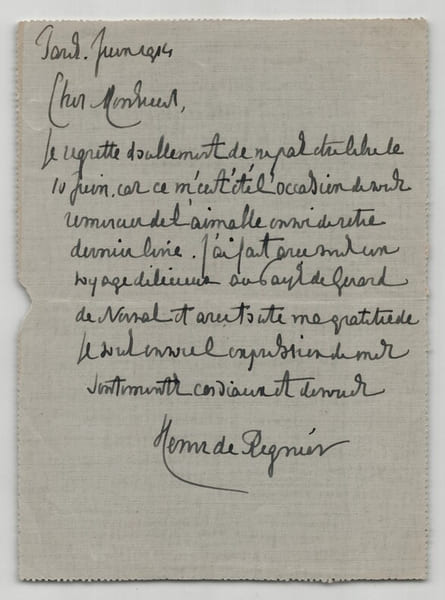 Paris. Juin 1914
Cher Monsieur,
Je regrette doublement de ne pas être libre le
10 Juin, car ce m'eut été l'occasion de vous
remercier de l'aimable envoi de votre
dernier livre. J'ai fait avec vous un
voyage délicieux au Pays de Gérard
de Nerval et avec toute ma gratitude
je vous envoie l'expression de mes
sentiments cordiaux et dévoués
Henri de Régnier